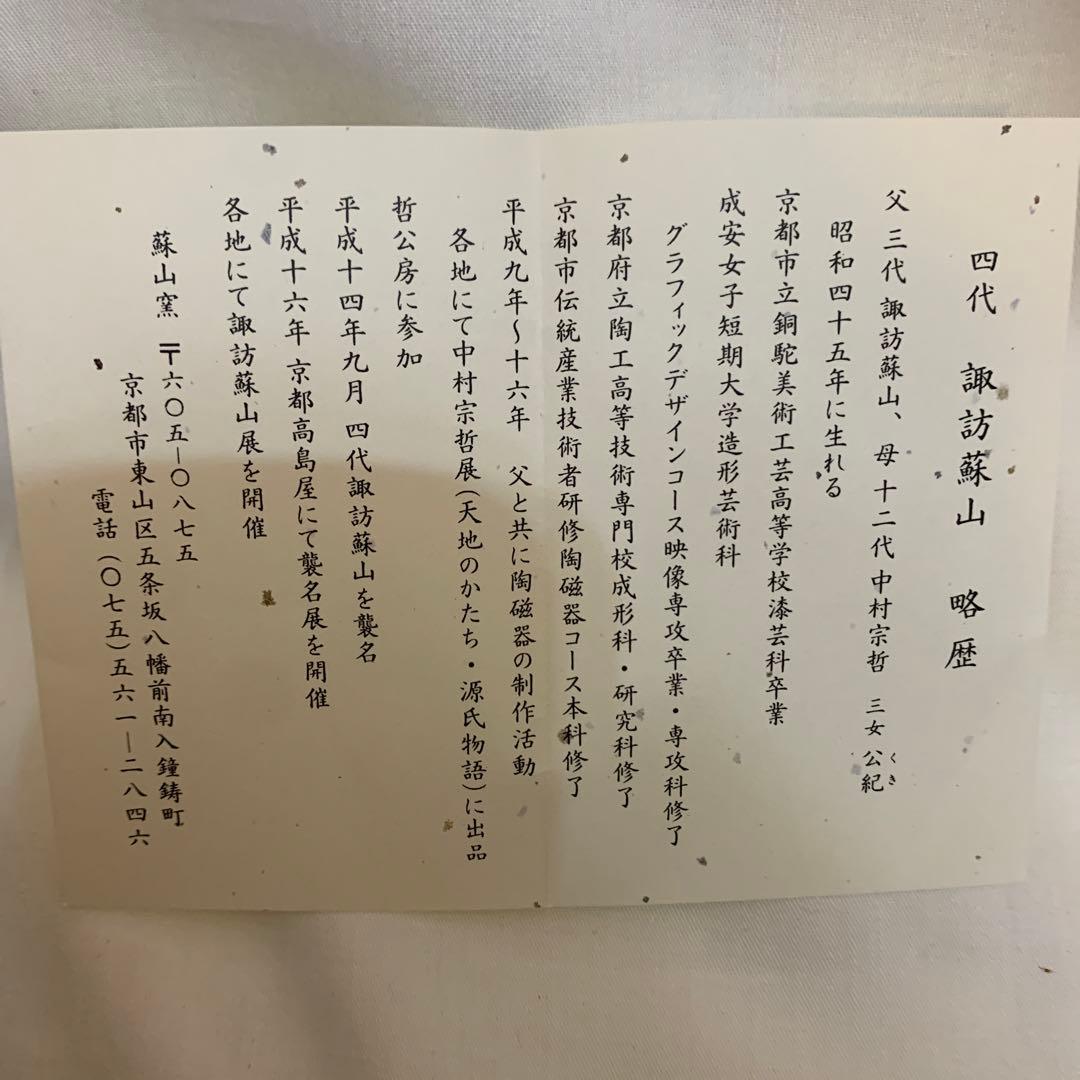 四代 諏訪蘇山 略歴
父 三代 諏訪蘇山、母 十二代 中村宗哲 三女 公紀
くき
昭和四十五年に生れる
京都市立銅駝美術工芸高等学校漆芸科卒業
成安女子短期大学造形芸術科
グラフィックデザインコース映像専攻卒業・専攻科修了
京都府立陶工高等技術専門校成形科・研究科修了
京都市伝統産業技術者研修陶磁器コース本科修了
平成九年〜十六年 父と共に陶磁器の制作活動
各地にて中村宗哲展(天地のかたち・源氏物語)に出品
哲公房に参加
平成十四年九月 四代諏訪蘇山を襲名
平成十六年 京都高島屋にて襲名展を開催
各地にて諏訪蘇山展を開催
蘇山窯 〒六〇五―〇八七五
京都市東山区五条坂八幡前南入鐘鋳町
電話(〇七五)五六一―二八四六